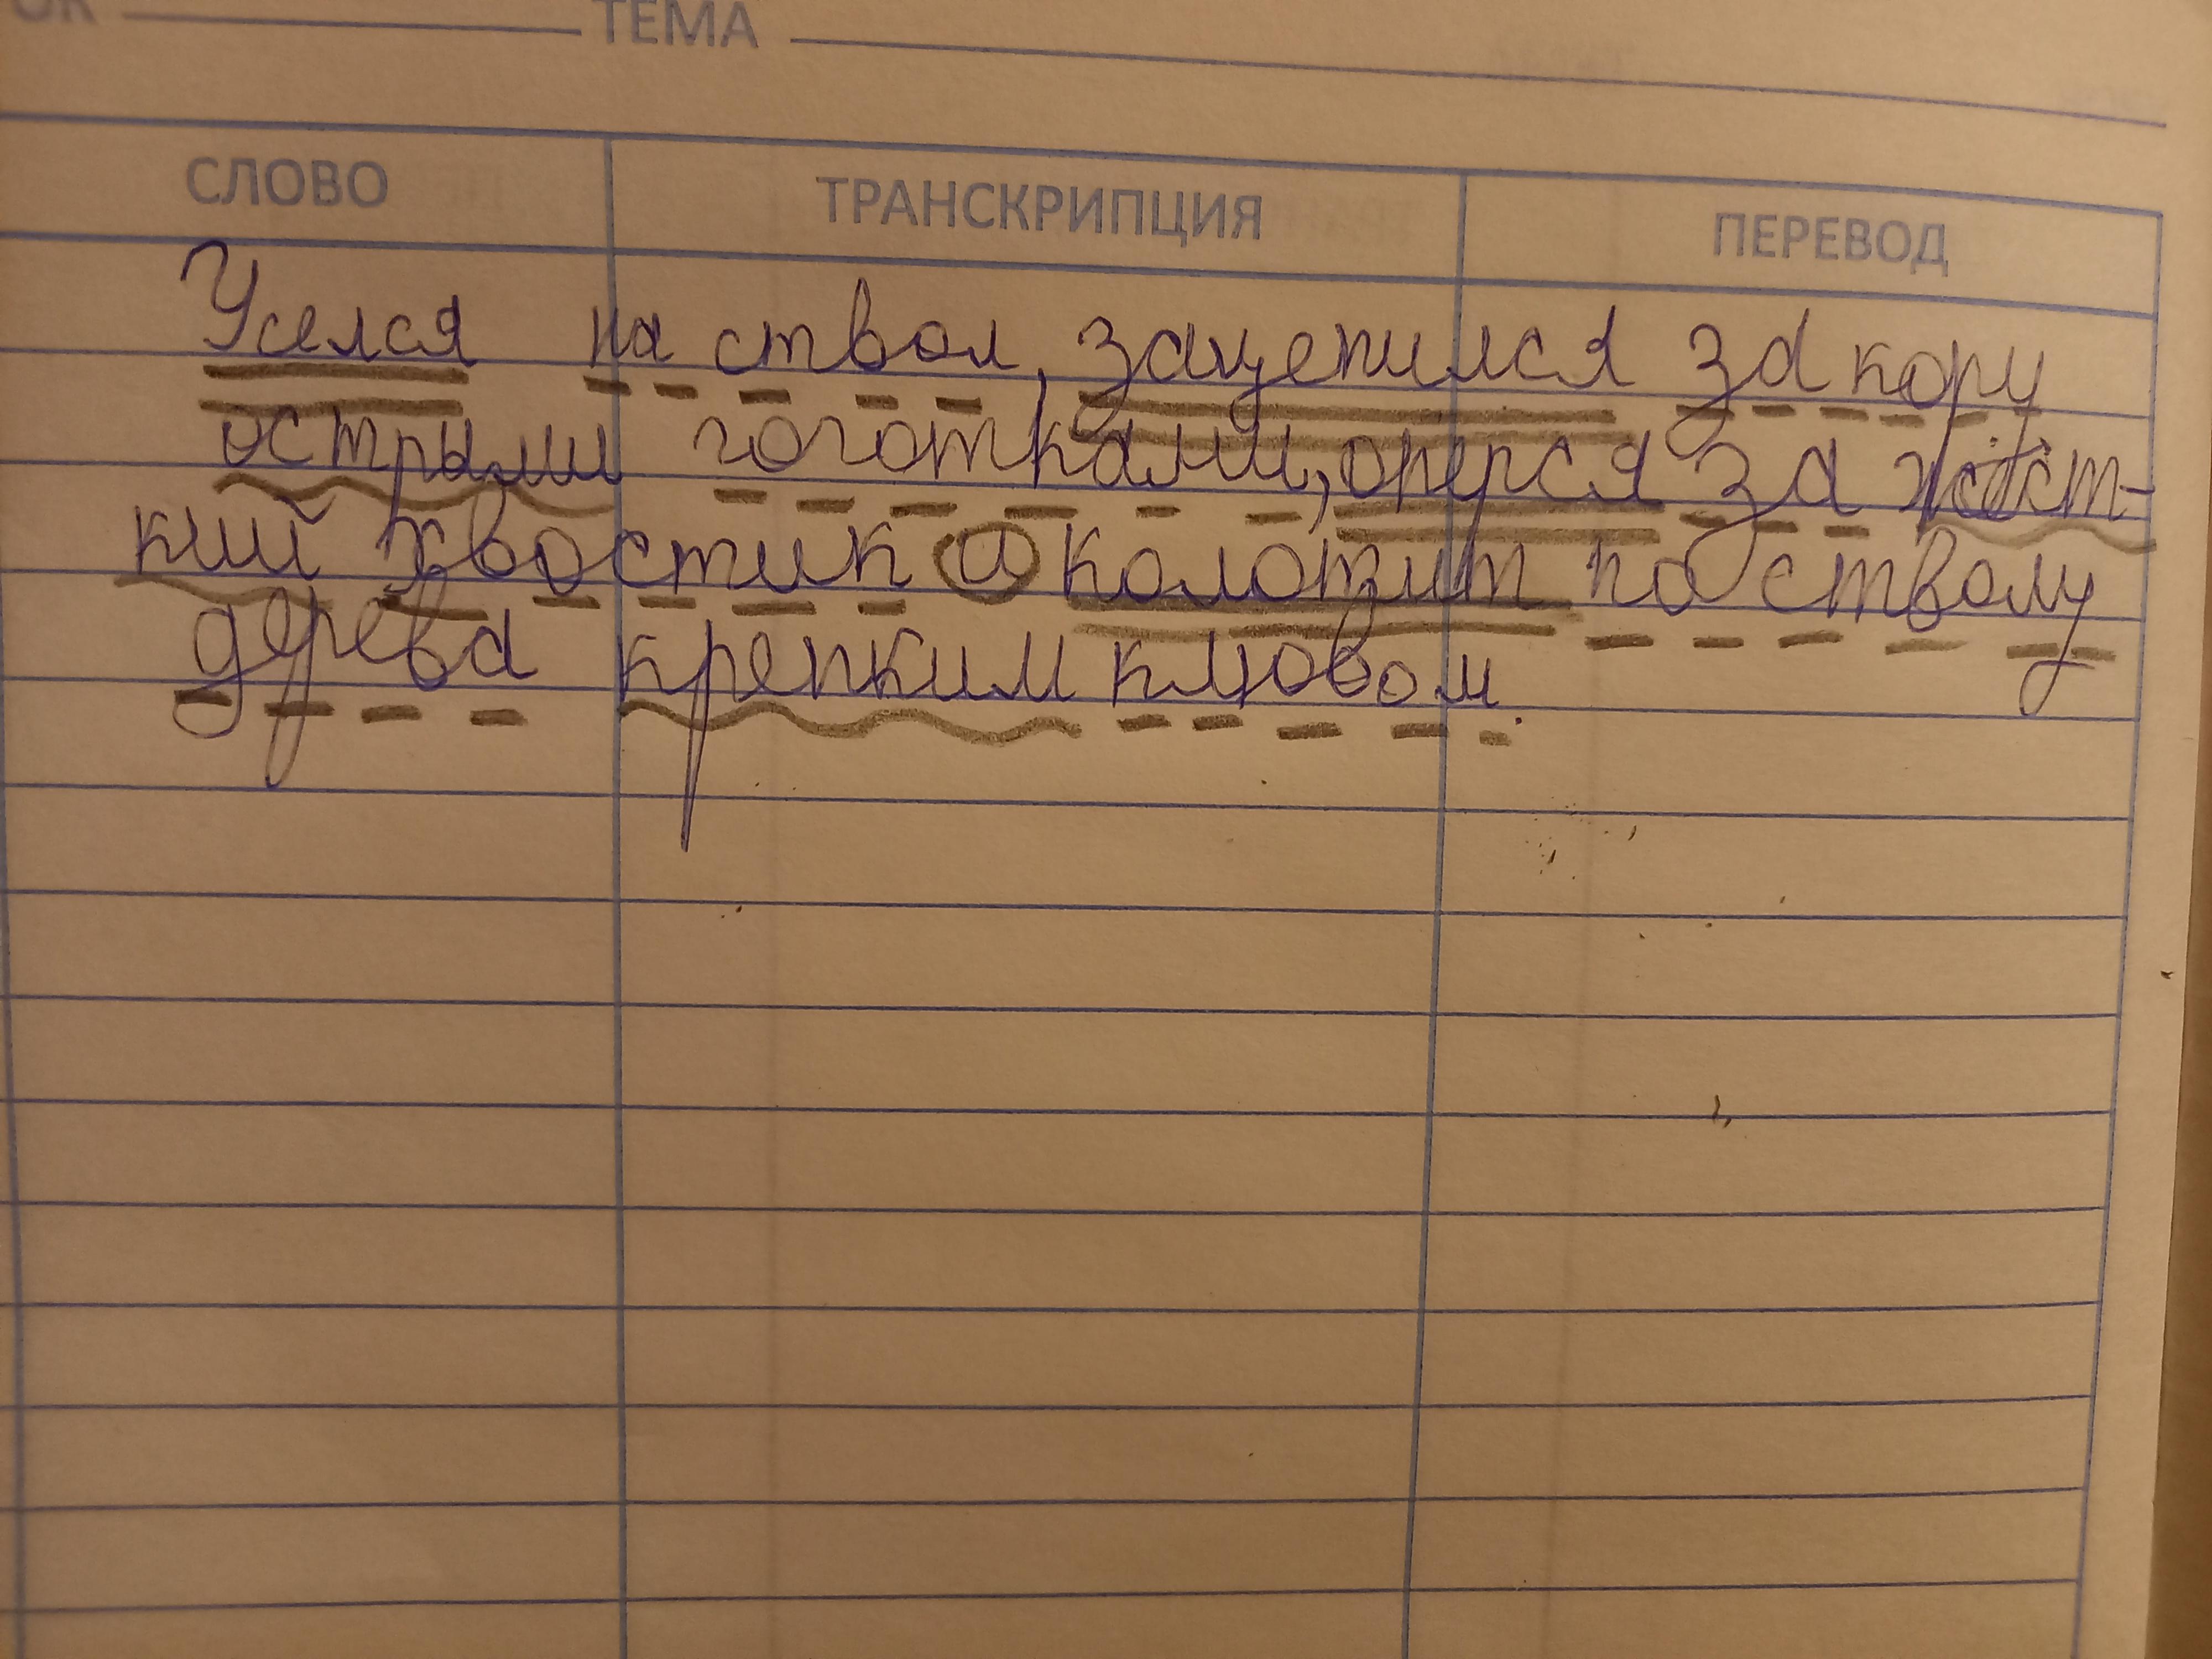 ОК ТЕМА
СЛОВО ТРАНСКРИПЦИЯ ПЕРЕВОД
Уселся на ствол, зацепился за кору
острыми гоготками, оперся за жёст-
кий хвостик и колотит по стволу
дерева крепким клювом.